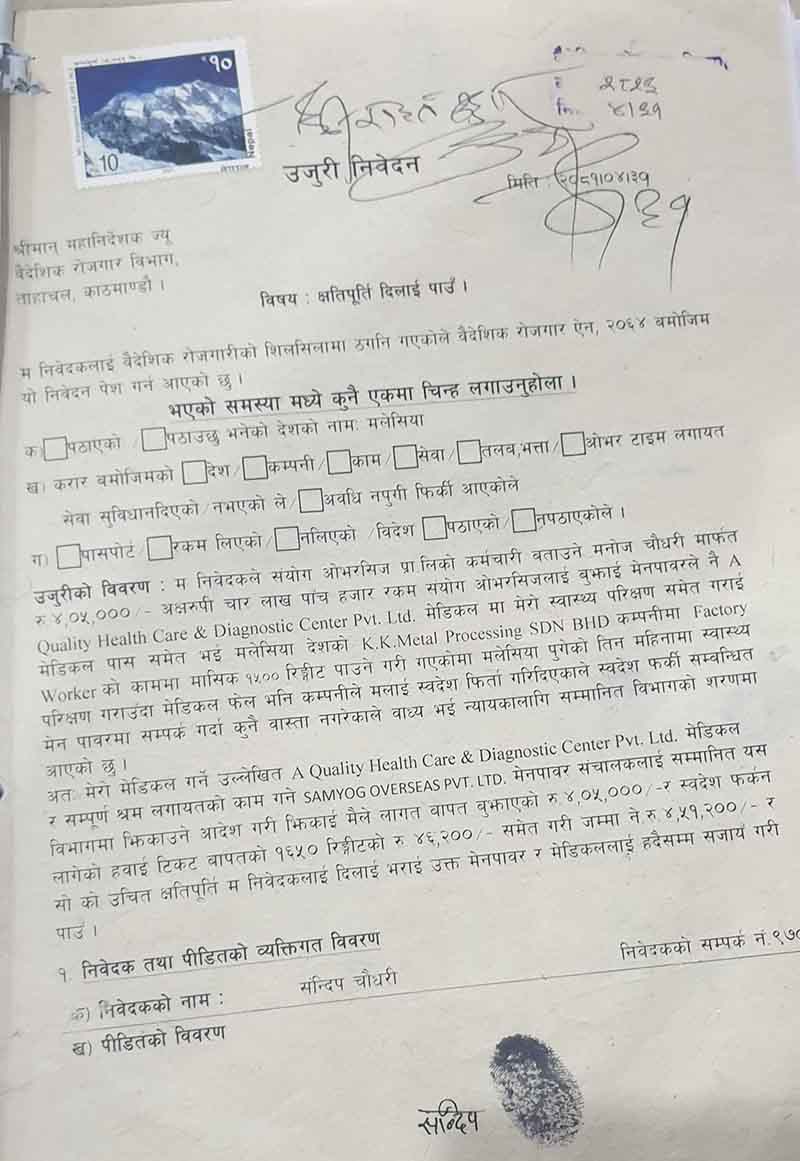 १०
10
नेपाल Nepal
२८९३
४।३१
उजुरी निवेदन
मिति : २०८१।०४।३१
श्रीमान् महानिर्देशक ज्यू
वैदेशिक रोजगार विभाग,
ताहाचल, काठमाण्डौ ।
विषय : क्षतिपूर्ति दिलाई पाउँ ।
म निवेदकलाई वैदेशिक रोजगारीको शिलसिलामा ठगनि गएकोले वैदेशिक रोजगार ऐन, २०६४ बमोजिम
यो निवेदन पेश गर्न आएको छु ।
भएको समस्या मध्ये कुनै एकमा चिन्ह लगाउनुहोला ।
क) पठाएको / पठाउछु भनेको देशको नामः मलेसिया
ख) करार बमोजिमको देश/ कम्पनी/ काम/ सेवा/ तलव,भत्ता/ ओभर टाइम लगायत
सेवा सुविधानदिएको/नभएको ले/ अवधि नपुगी फिर्की आएकोले
ग) पासपोर्ट/ रकम लिएको/ नलिएको /विदेश पठाएको/ नपठाएकोले ।
उजुरीको विवरण : म निवेदकले संयोग ओभरसिज प्रा लिको कर्मचारी बताउने मनोज चौधरी मार्फत
रु ४,०५,०००/- अक्षरुपी चार लाख पांच हजार रकम संयोग ओभरसिजलाई बुझाई मेनपावरले नै A
Quality Health Care & Diagnostic Center Pvt. Ltd. मेडिकल मा मेरो स्वास्थ्य परिक्षण समेत गराई
मेडिकल पास समेत भई मलेसिया देशको K.K.Metal Processing SDN BHD कम्पनीमा Factory
Worker को काममा मासिक १५०० रिङ्गीट पाउने गरी गएकोमा मलेसिया पुगेको तिन महिनामा स्वास्थ्य
परिक्षण गराउंदा मेडिकल फेल भनि कम्पनीले मलाई स्वदेश फिर्ता गरिदिएकाले स्वदेश फर्की सम्वन्धित
मेन पावरमा सम्पर्क गर्दा कुनै वास्ता नगरेकाले वाध्य भई न्यायकालागि सम्मानित विभागको शरणमा
आएको छु ।
अतः मेरो मेडिकल गर्ने उल्लेखित A Quality Health Care & Diagnostic Center Pvt. Ltd. मेडिकल
र सम्पूर्ण श्रम लगायतको काम गर्ने SAMYOG OVERSEAS PVT. LTD. मेनपावर संचालकलाई सम्मानित यस
विभागमा झिकाउने आदेश गरी झिकाई मैले लागत वापत बुझाएको रु ४,०५,०००/-र स्वदेश फर्कन
लागेको हवाई टिकट वापतको १६५० रिङ्गीटको रु ४६,२००/- समेत गरी जम्मा ने.रु ४,५१,२००/- र
सो को उचित क्षतिपूर्ति म निवेदकलाई दिलाई भराई उक्त मेनपावर र मेडिकललाई हदैसम्म सजायँ गरी
पाउँ ।
१. निवेदक तथा पीडितको व्यक्तिगत विवरण
निवेदकको सम्पर्क नं.९७०
क) निवेदकको नाम : संन्दिप चौधरी
ख) पीडितको विवरण
सन्दिप